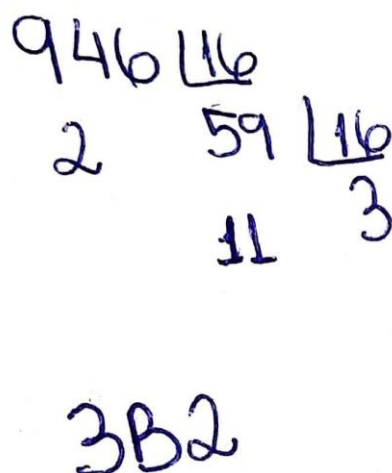 946 16
2 59 16
11 3
3B2